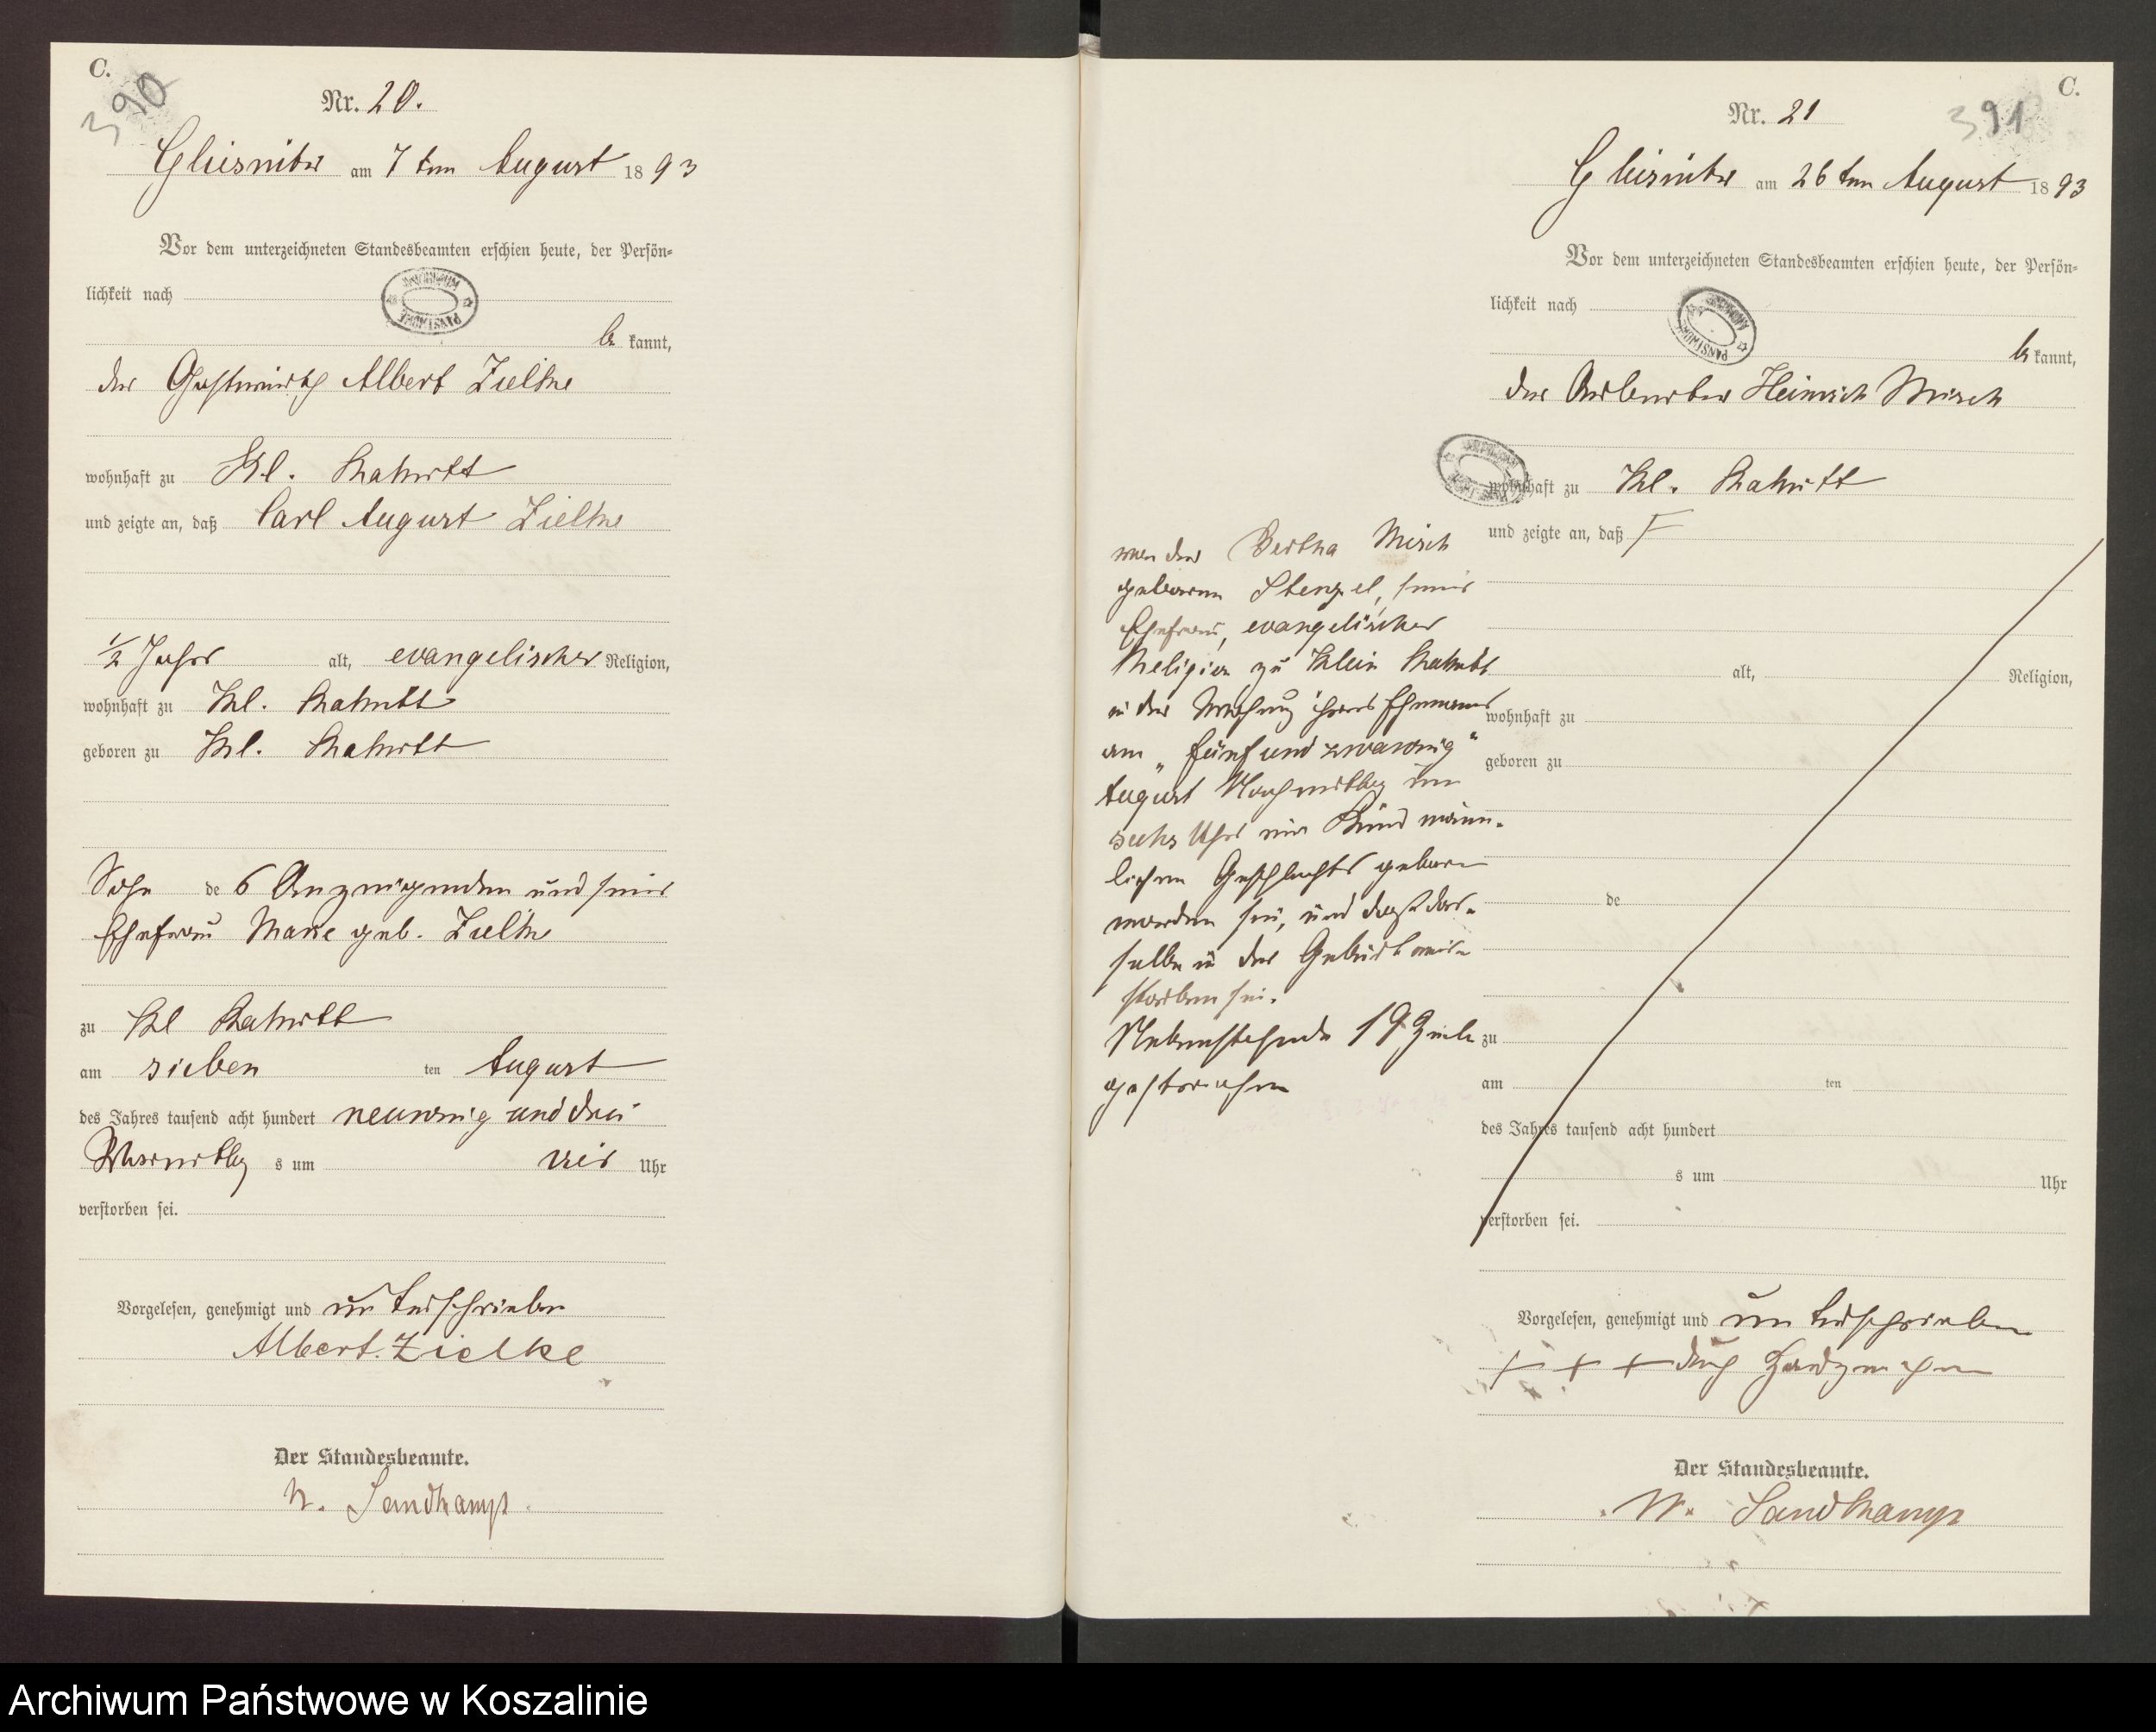 C.
390
Nr. 20.
Gliesnitz am 7ten August 1893
Vor dem unterzeichneten Standesbeamten erschien heute, der Persön-
lichkeit nach
be kannt,
der Gastwirth Albert Zielke
wohnhaft zu Kl. Rakitt
und zeigte an, daß Carl August Zielke
1/2 Jahr alt, evangelischer Religion,
wohnhaft zu Kl. Rakitt
geboren zu Kl. Rakitt
Sohn des Anzeigenden und seiner
Ehefrau Marie geb. Zielke
zu Kl Rakitt
am sieben ten August
des Jahres tausend acht hundert neunzig und drei
Vormittags um vier Uhr
verstorben sei.
Vorgelesen, genehmigt und unterschrieben
Albert Zielke
Der Standesbeamte.
W. Sandkamp
C.
391
Nr. 21
Gliesnitz am 26ten August 1893
Vor dem unterzeichneten Standesbeamten erschien heute, der Persön-
lichkeit nach
be kannt,
der Arbeiter Heinrich Misch
wohnhaft zu Kl. Rakitt
und zeigte an, daß
von der Bertha Misch
geborenen Stenzel, seiner
Ehefrau, evangelischer
Religion zu Klein Rakitt
in der Wohnung ihres Ehemanns
am „fünf und zwanzig“
August Nachmittag um
sechs Uhr ein Kind männ-
lichen Geschlechts geboren
worden sei, und daß das-
selbe in der Geburt ver-
storben sei.
Nebenstehende 19 Zeilen
gestrichen
alt, Religion,
wohnhaft zu
geboren zu
de
zu
am ten
des Jahres tausend acht hundert
s um Uhr
verstorben sei.
Vorgelesen, genehmigt und unterschrieben
+ + + durch Handzeichen
Der Standesbeamte.
W. Sandkamp
Archiwum Państwowe w Koszalinie